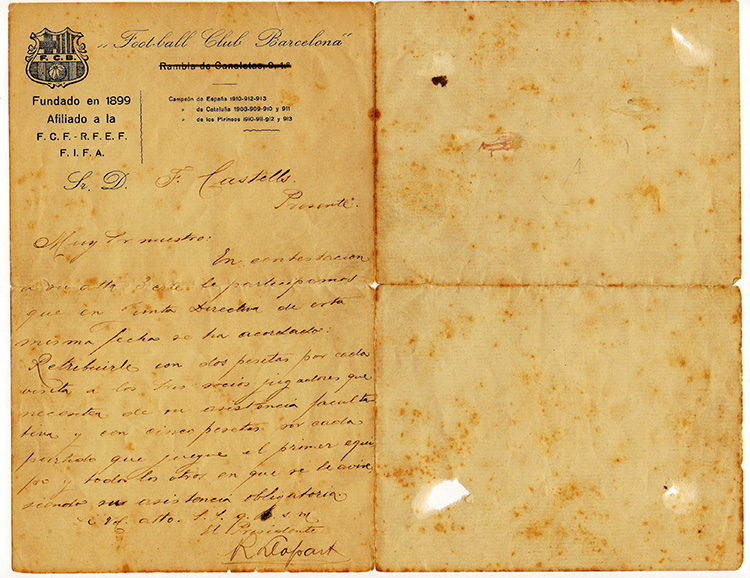 F. C. B.
„Foot-ball Club Barcelona"
Rambla de Canaletas, 9, 1.º
Fundado en 1899
Afiliado a la
F. C. F. - R. F. E. F.
F. I. F. A.
Campeón de España 1910-912-913
» de Cataluña 1903-909-910 y 911
» de los Pirineos 1910-911-912 y 913
Sr. D. F. Castells.
Presente.
Muy Sr nuestro:
En contestacion
a su atta le participamos
que en Junta Directiva de esta
misma fecha se ha acordado:
Retribuirle con dos pesetas por cada
visita a los socios jugadores que
necesiten de su asistencia faculta
tiva y con cinco pesetas por cada
partido que juegue el primer equi
po y todos los otros en que se le avise
siendo su asistencia obligatoria
atto. S. S. q. b. s. m
El Presidente
R Llopart